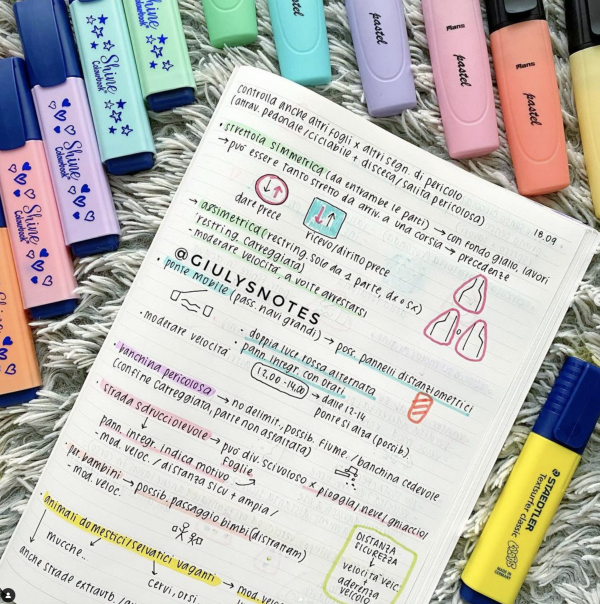 Shine
Colourbook
Shine
Colourbook
Shine
Colourbook
Shine
Colourbook
Shine
Colourbook
pastel
pastel
Plans
pastel
Plans
pastel
18.09
controlla anche altri fogli x altri segn. di pericolo
(attrav. pedonale/ciclabile + discesa/salita pericolosa)
• strettoia simmetrica (da entrambe le parti) → con fondo giallo, lavori
→ può essere tanto stretto da arriv. a una corsia → precedenze
dare prec
ricevo/diritto prece
→ asimmetrica (restring. solo da 1 parte, dx o sx)
- restring. carreggiata
- moderare velocità, a volte arrestarsi
@GIULYSNOTES
• ponte mobile (pass. navi grandi) → poss. pannelli distanziometrici
• doppia luce rossa alternata
• pann. integr. con orari
12.00-14.00 → dalle 12-14
ponte si alza (possib.)
- moderare velocità
• banchina pericolosa → no delimit., possib. fiume / banchina cedevole
(confine carreggiata, parte non asfaltata)
• strada sdrucciolevole → può div. scivoloso x pioggia/neve/ghiaccio/
foglie
pann. integr. indica motivo
- mod. veloc. / distanza sicu + ampia/
bambini → possib. passaggio bimbi (distrattam)
- mod. veloc.
• animali domestici/selvatici vaganti → mod. velo
mucche..
cervi, orsi
anche strade extraurb.
DISTANZA
SICUREZZA
velocità veic.
aderenza
veicolo
STAEDTLER
Textsurfer classic
MADE IN
GERMANY